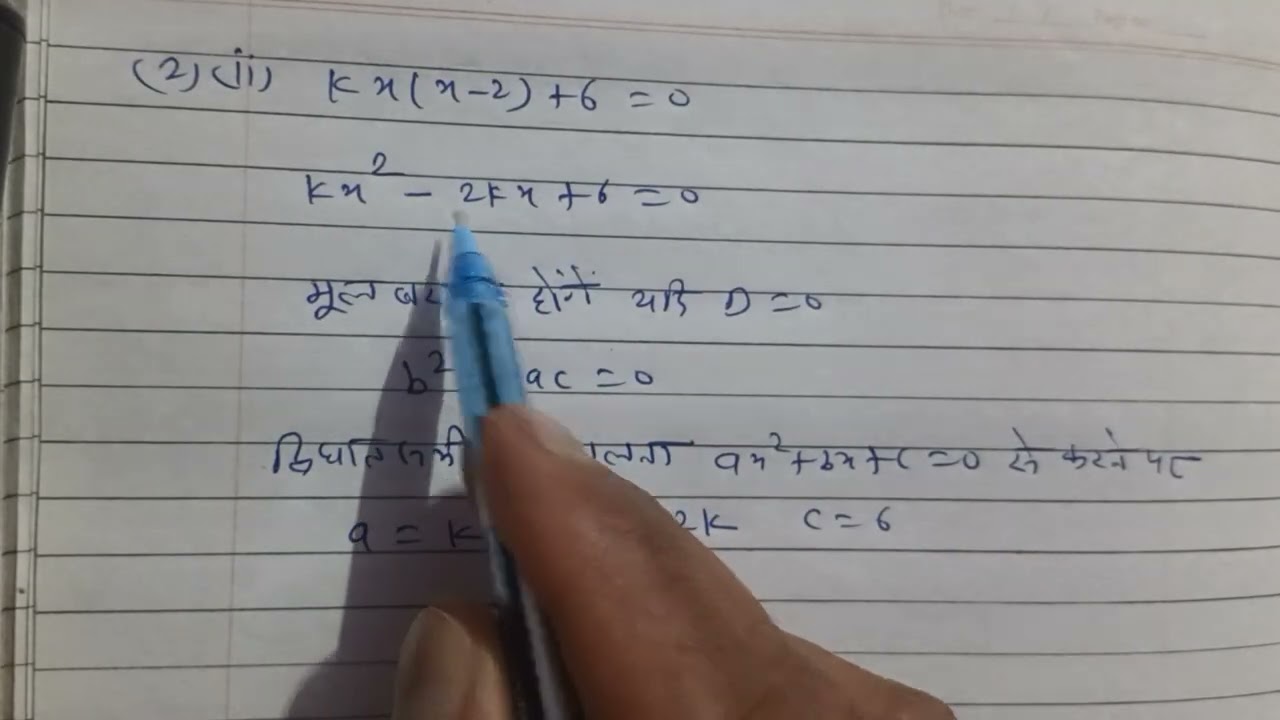 (2)(ii) kx(x-2)+6=0
kx² - 2kx+6=0
मूल होंगे यदि D=0
b² ac=0
ax²+bx+c=0 से करने पर
a=k 2k c=6